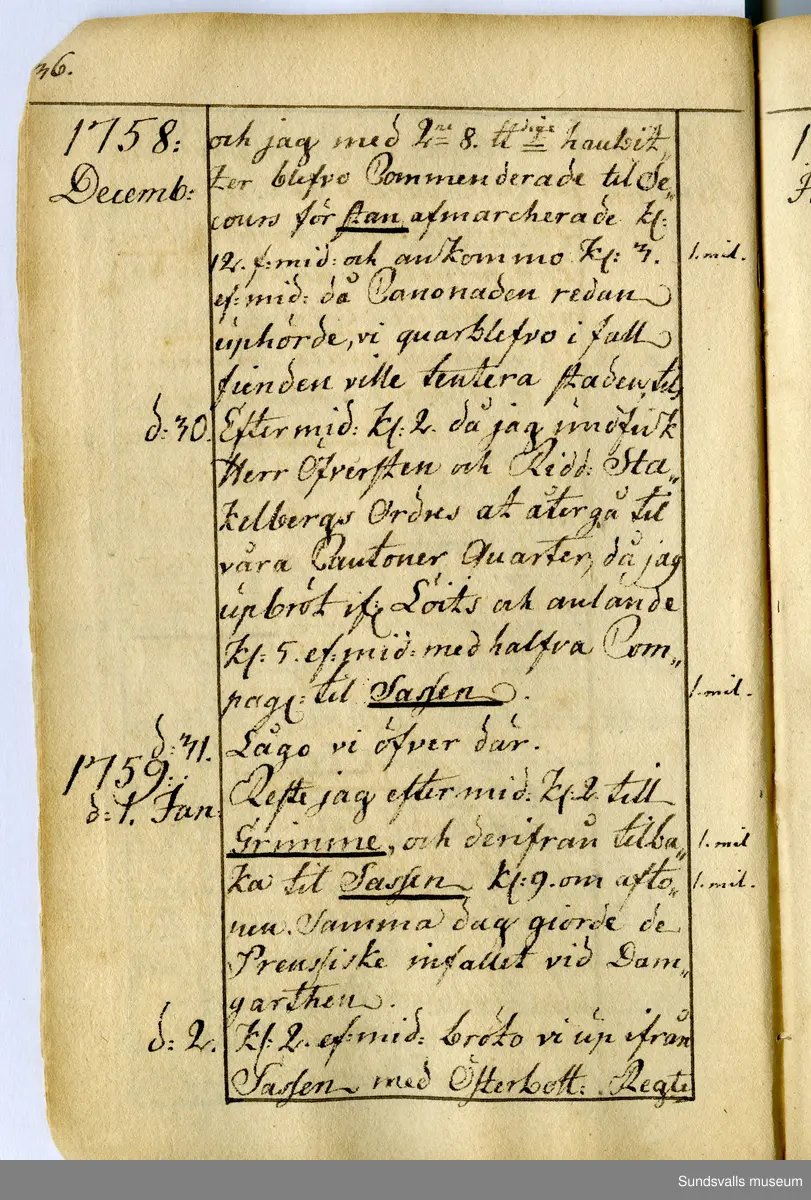 36.
1758:
Decemb:
och jag med 2ne 8. ℔ dige haubit„
zer blefvo Commenderade til Se„
cours för stan, afmarcherade Kl:
12. f:mid: och ankommo Kl: 3. 1. mil.
ef:mid: då Canonaden redan
uphörde, vi quarblefvo i fall
fienden ville tentera staden, til
d: 30. Eftermid: Kl: 2. då jag undfick
Herr Öfversten och Ridd: Sta„
kelbergs Ordres at återgå til
våra Cantoner Quarter, då jag
upbröt if: Löits och anlände
Kl: 5. ef:mid: med halfva Com„
pag: til Sassen. 1. mil.
d: 31. Lågo vi öfver där.
1759:
d: 1. Jan: Reste jag eftermid: Kl: 2. till
Grimme, och derifrån tilba„ 1. mil
ka til Sassen Kl: 9. om afto„ 1. mil.
nen. Samma dag giorde de
Preussiske infallet vid Dam„
garthen.
d: 2. Kl: 2. ef:mid: bröto vi up ifrån
Sassen med Österbott: Regte
Sundsvalls museum